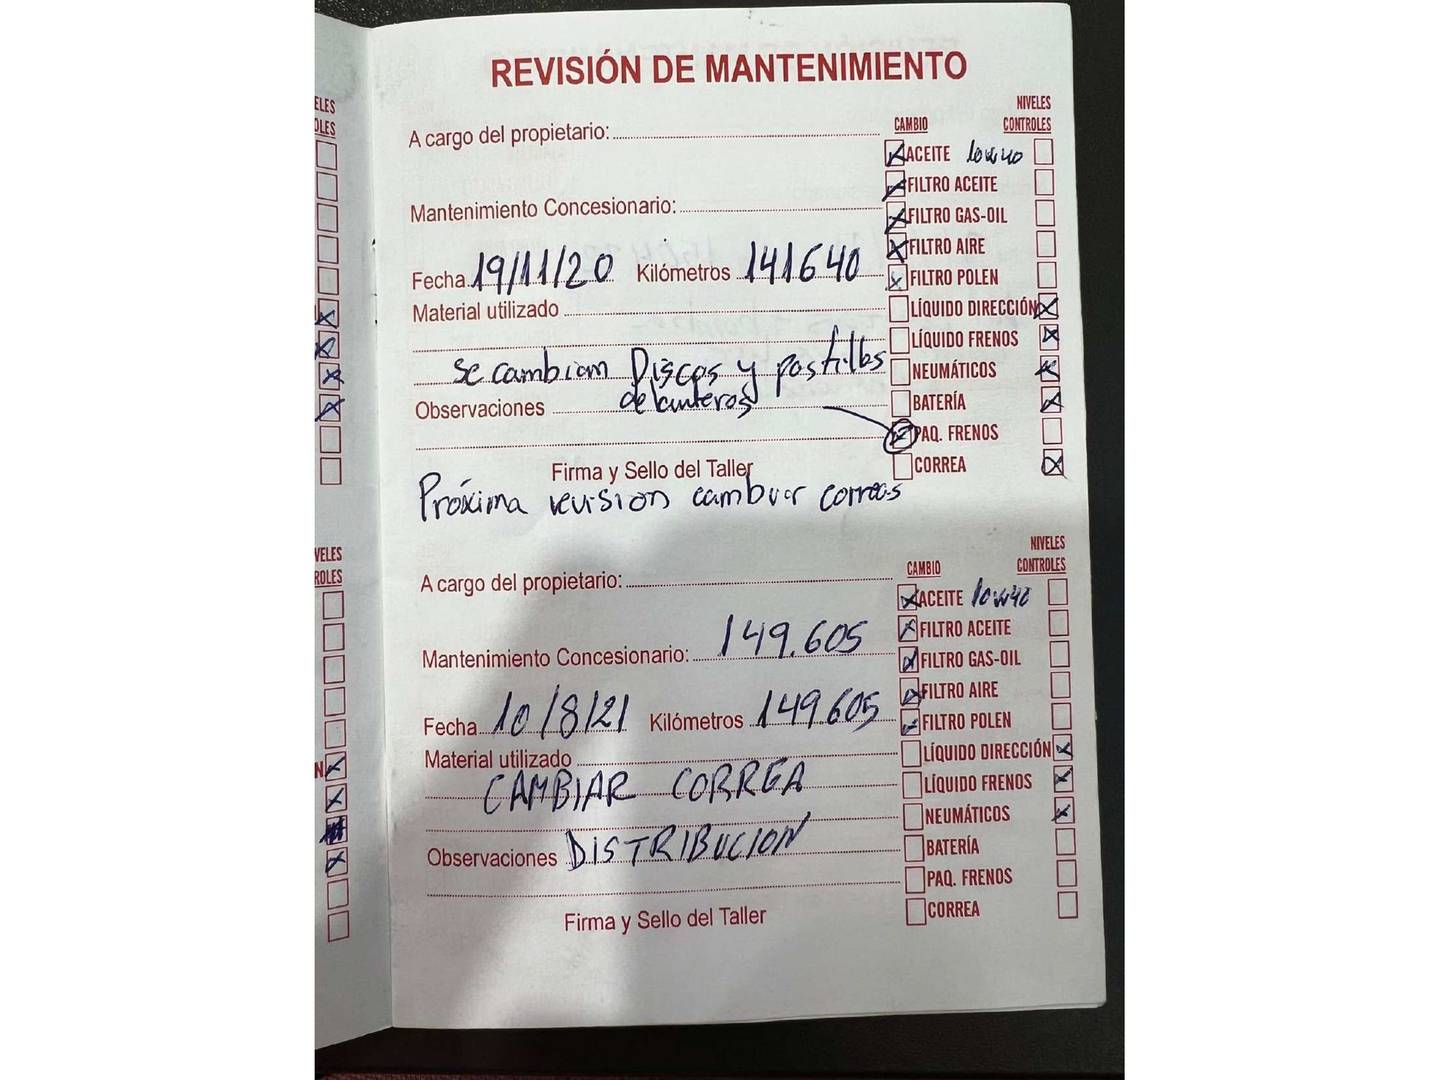 REVISIÓN DE MANTENIMIENTO
NIVELES
A cargo del propietario:
CAMBIO CONTROLES
ACEITE 10W40
FILTRO ACEITE
Mantenimiento Concesionario:
FILTRO GAS-OIL
FILTRO AIRE
Fecha 19/11/20 Kilómetros 141640
FILTRO POLEN
Material utilizado
LÍQUIDO DIRECCIÓN
LÍQUIDO FRENOS
Se cambian Discos y pastillas
NEUMÁTICOS
delanteros
Observaciones
BATERÍA
PAQ. FRENOS
Firma y Sello del Taller
CORREA
Próxima revisión cambiar correas
NIVELES
A cargo del propietario:
CAMBIO CONTROLES
ACEITE 10W40
FILTRO ACEITE
Mantenimiento Concesionario: 149.605
FILTRO GAS-OIL
FILTRO AIRE
Fecha 10/8/21 Kilómetros 149605
FILTRO POLEN
Material utilizado
LÍQUIDO DIRECCIÓN
CAMBIAR CORREA
LÍQUIDO FRENOS
NEUMÁTICOS
Observaciones DISTRIBUCION
BATERÍA
PAQ. FRENOS
Firma y Sello del Taller
CORREA
ELES
OLES
VELES
ROLES
N